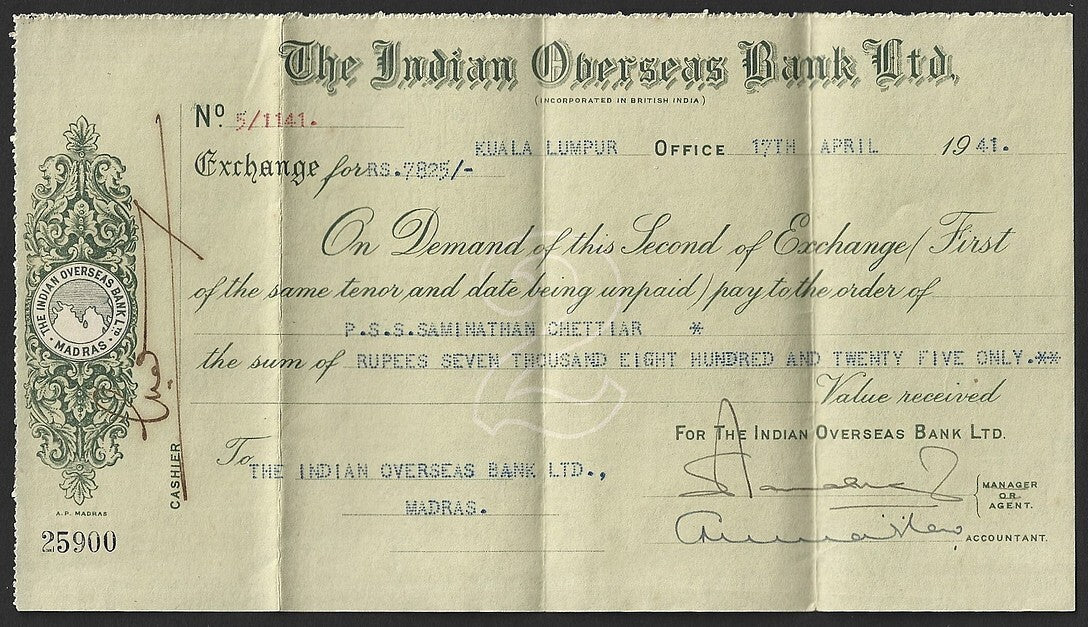 The Indian Overseas Bank Ltd.
(INCORPORATED IN BRITISH INDIA)
Nº 5/1141.
KUALA LUMPUR OFFICE 17TH APRIL 1941.
Exchange for RS.7825/-
On Demand of this Second of Exchange (First
of the same tenor and date being unpaid) pay to the order of
P.S.S.SAMINATHAN CHETTIAR *
the sum of RUPEES SEVEN THOUSAND EIGHT HUNDRED AND TWENTY FIVE ONLY.**
Value received
2
FOR THE INDIAN OVERSEAS BANK LTD.
To THE INDIAN OVERSEAS BANK LTD.,
MADRAS.
MANAGER
OR
AGENT.
ACCOUNTANT.
CASHIER
· THE INDIAN OVERSEAS BANK LTD ·
MADRAS
A.P. MADRAS
25900